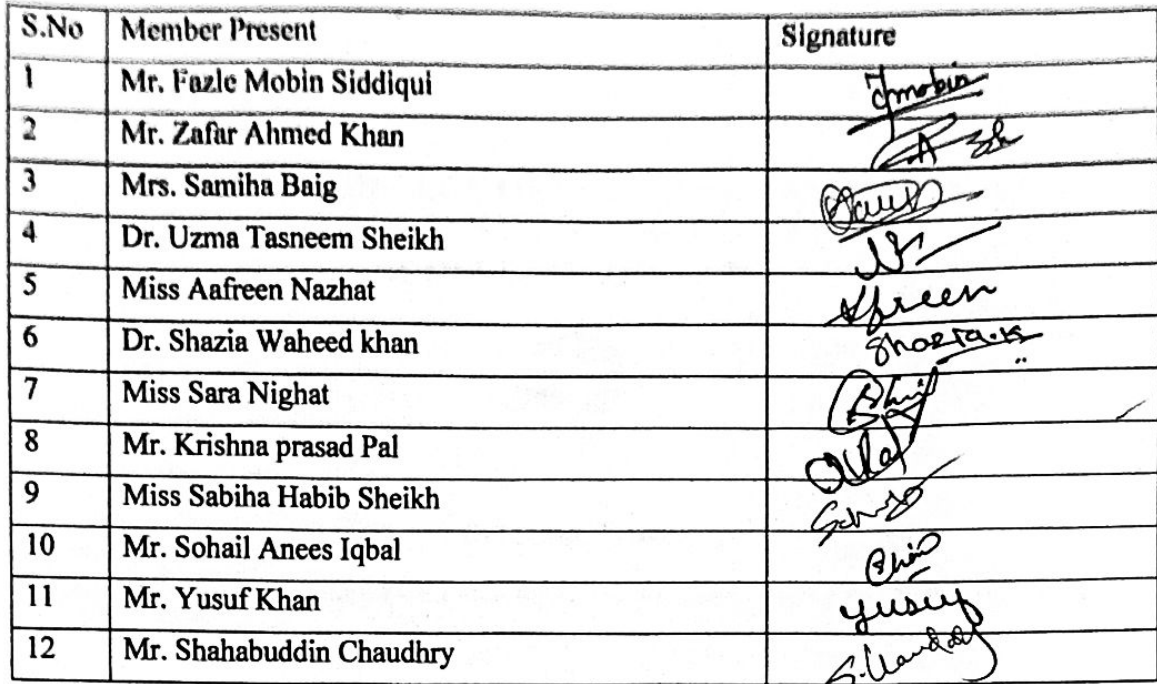 S.No Member Present Signature
1 Mr. Fazle Mobin Siddiqui Fmobin
2 Mr. Zafar Ahmed Khan
3 Mrs. Samiha Baig
4 Dr. Uzma Tasneem Sheikh
5 Miss Aafreen Nazhat Afreen
6 Dr. Shazia Waheed khan Shazia.K
7 Miss Sara Nighat
8 Mr. Krishna prasad Pal
9 Miss Sabiha Habib Sheikh
10 Mr. Sohail Anees Iqbal
11 Mr. Yusuf Khan Yusuf
12 Mr. Shahabuddin Chaudhry